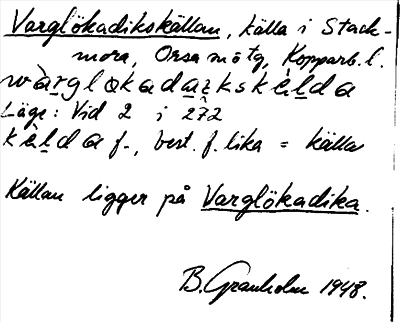 Varglökadikskällan, källa i Stack-
mora, Orsa mötg, Kopparb. l.
wàrglokadaikskèlda
Läge: Vid 2 i 272
kèlda f., best. f. lika = källa
Källan ligger på Varglökadika.
B. Granholm 1948.